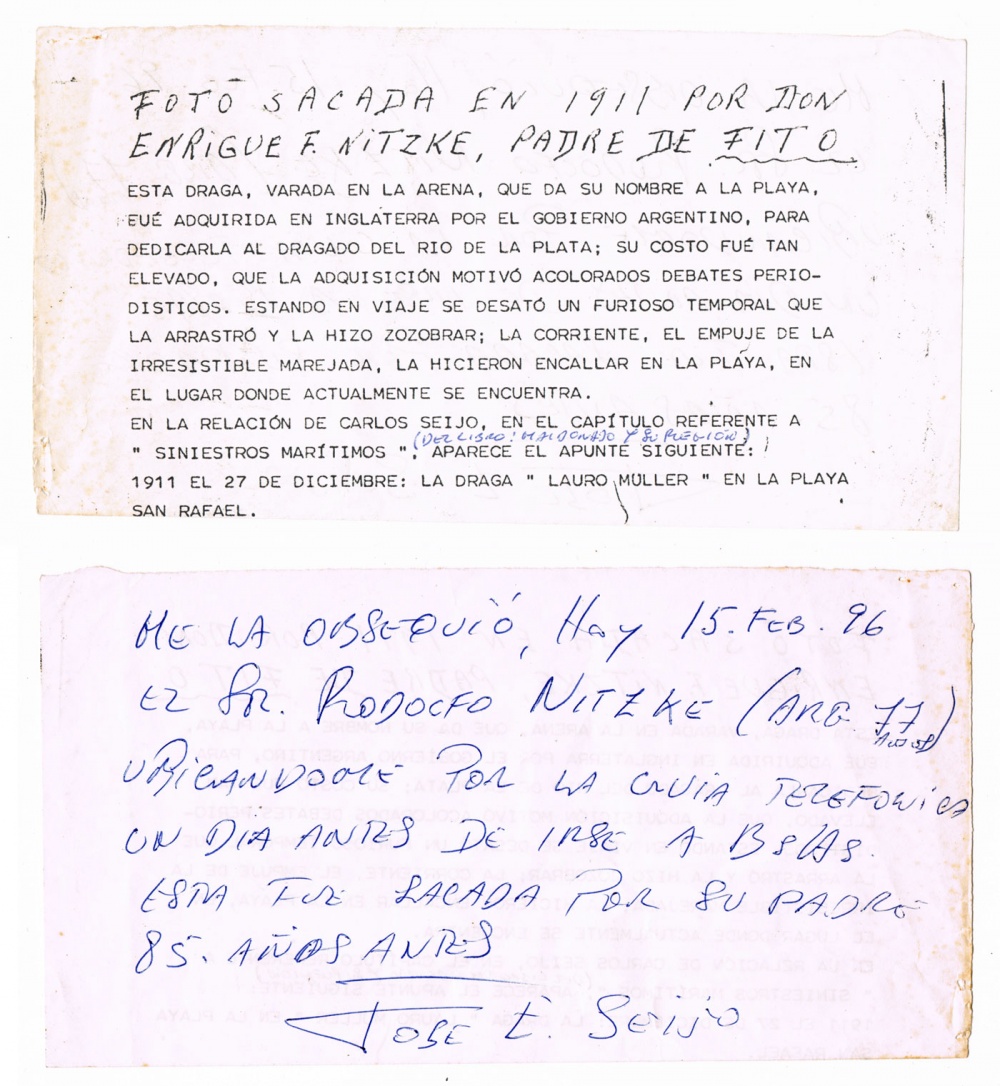 FOTO SACADA EN 1911 POR DON
ENRIGUE F. NITZKE, PADRE DE FITO
ESTA DRAGA, VARADA EN LA ARENA, QUE DA SU NOMBRE A LA PLAYA,
FUÉ ADQUIRIDA EN INGLATERRA POR EL GOBIERNO ARGENTINO, PARA
DEDICARLA AL DRAGADO DEL RIO DE LA PLATA; SU COSTO FUÉ TAN
ELEVADO, QUE LA ADQUISICIÓN MOTIVÓ ACOLORADOS DEBATES PERIO-
DISTICOS. ESTANDO EN VIAJE SE DESATÓ UN FURIOSO TEMPORAL QUE
LA ARRASTRÓ Y LA HIZO ZOZOBRAR; LA CORRIENTE, EL EMPUJE DE LA
IRRESISTIBLE MAREJADA, LA HICIERON ENCALLAR EN LA PLAYA, EN
EL LUGAR DONDE ACTUALMENTE SE ENCUENTRA.
EN LA RELACIÓN DE CARLOS SEIJO, EN EL CAPÍTULO REFERENTE A
(DEL LIBRO: MALDONADO Y SU REGIÓN)
" SINIESTROS MARÍTIMOS ", APARECE EL APUNTE SIGUIENTE:
1911 EL 27 DE DICIEMBRE: LA DRAGA " LAURO MULLER " EN LA PLAYA
SAN RAFAEL.
ME LA OBSEQUIÓ, Hoy 15. FEB. 96
EL SR. RODOLFO NITZKE (ARG 77
AÑOS)
UBICANDOME POR LA GUIA TELEFONICA
UN DIA ANTES DE IRSE A Bs/As.
ESTA FUE SACADA POR SU PADRE
85. AÑOS ANTES
JOSE E. Seijo